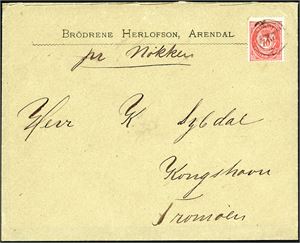 BRÖDRENE HERLOFSON, ARENDAL
pr Nökken
Herr K Sybdal
Kongshavn
Tromöen